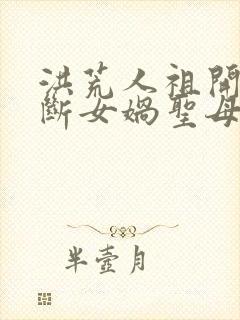 洪荒人祖開
斷女媧聖母
半壺月